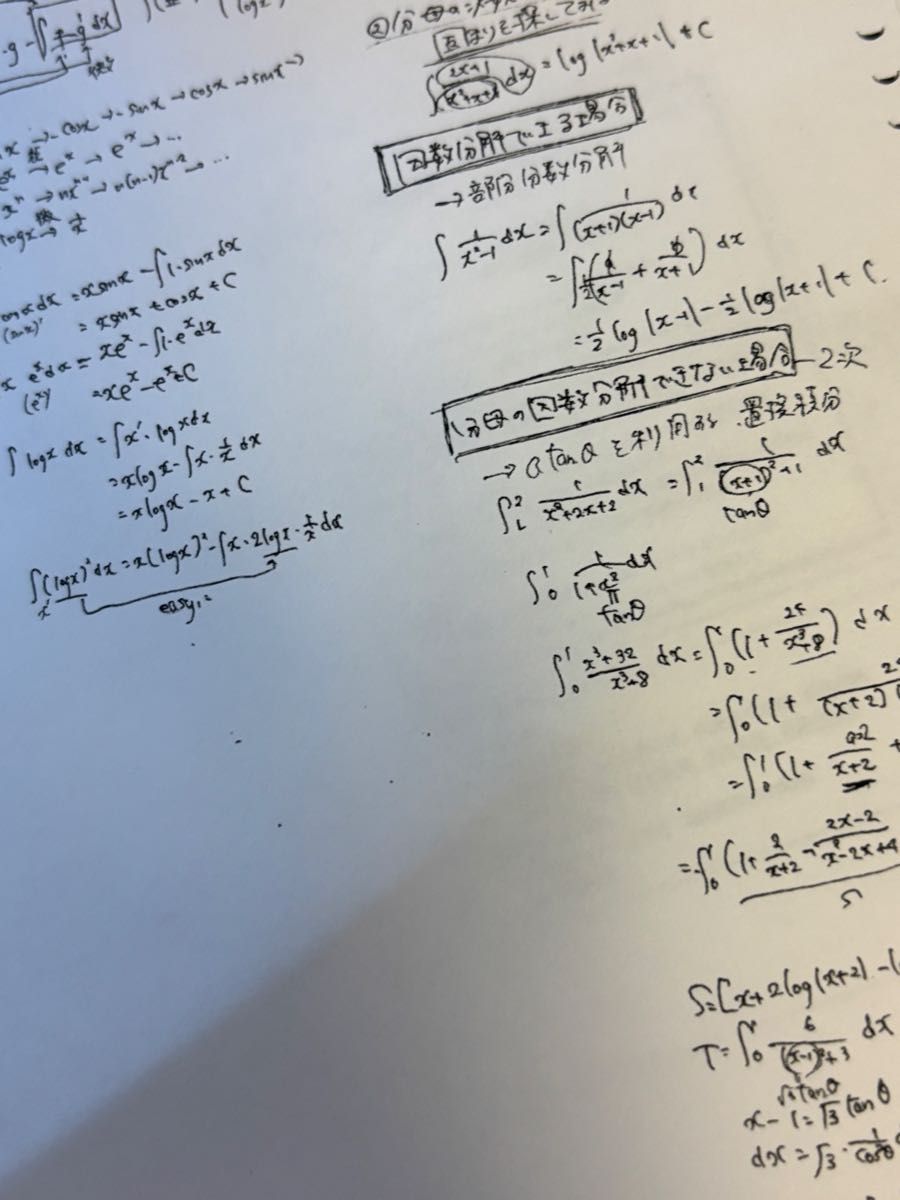 x → -cosx → -sinx → cosx → sinx →
e^x → e^x → e^x → …
x^n → nx^{n-1} → n(n-1)x^{n-2} → …
logx → 1/x
dx = xsinx - ∫1·sinxdx
= xsinx + cosx + C
x e^x dx = xe^x - ∫1·e^x dx
(e^x)'
= xe^x - e^x + C
∫logx dx = ∫x'·logxdx
= xlogx - ∫x·1/x dx
= xlogx - x + C
∫(logx)^2 dx = x(logx)^2 - ∫x·2logx·1/x dx
x'
easy
②分母の
∫ (2x+1)/(x^2+x+1) dx = log|x^2+x+1| + C
因数分解できる場合
→部分分数分解
∫ 1/(x^2-1) dx = ∫ 1/((x+1)(x-1)) dx
= 1/2 log|x-1| - 1/2 log|x+1| + C.
分母の因数分解できない場合 - 2次
→ a tanθを利用する 置換積分
∫_1^2 1/(x^2+2x+2) dx = ∫_1^2 1/((x+1)^2+1) dx
tanθ
tanθ
∫_0^1 (x^3+32)/(x^3+8) dx = ∫_0^1 (1 + 24/(x^3+8)) dx
= ∫_0^1 (1 + (x+2)
= ∫_0^1 (1 + x+2 +
= ∫_0^1 (1 + 2/(x+2) - (2x-2)/(x^2-2x+4)
S
S = [x+2log(x+2) -
T = ∫_0^1 6/((x-1)^2+3) dx
√3tanθ
x-1 = √3 tanθ
dx = √3·1/cos^2θ